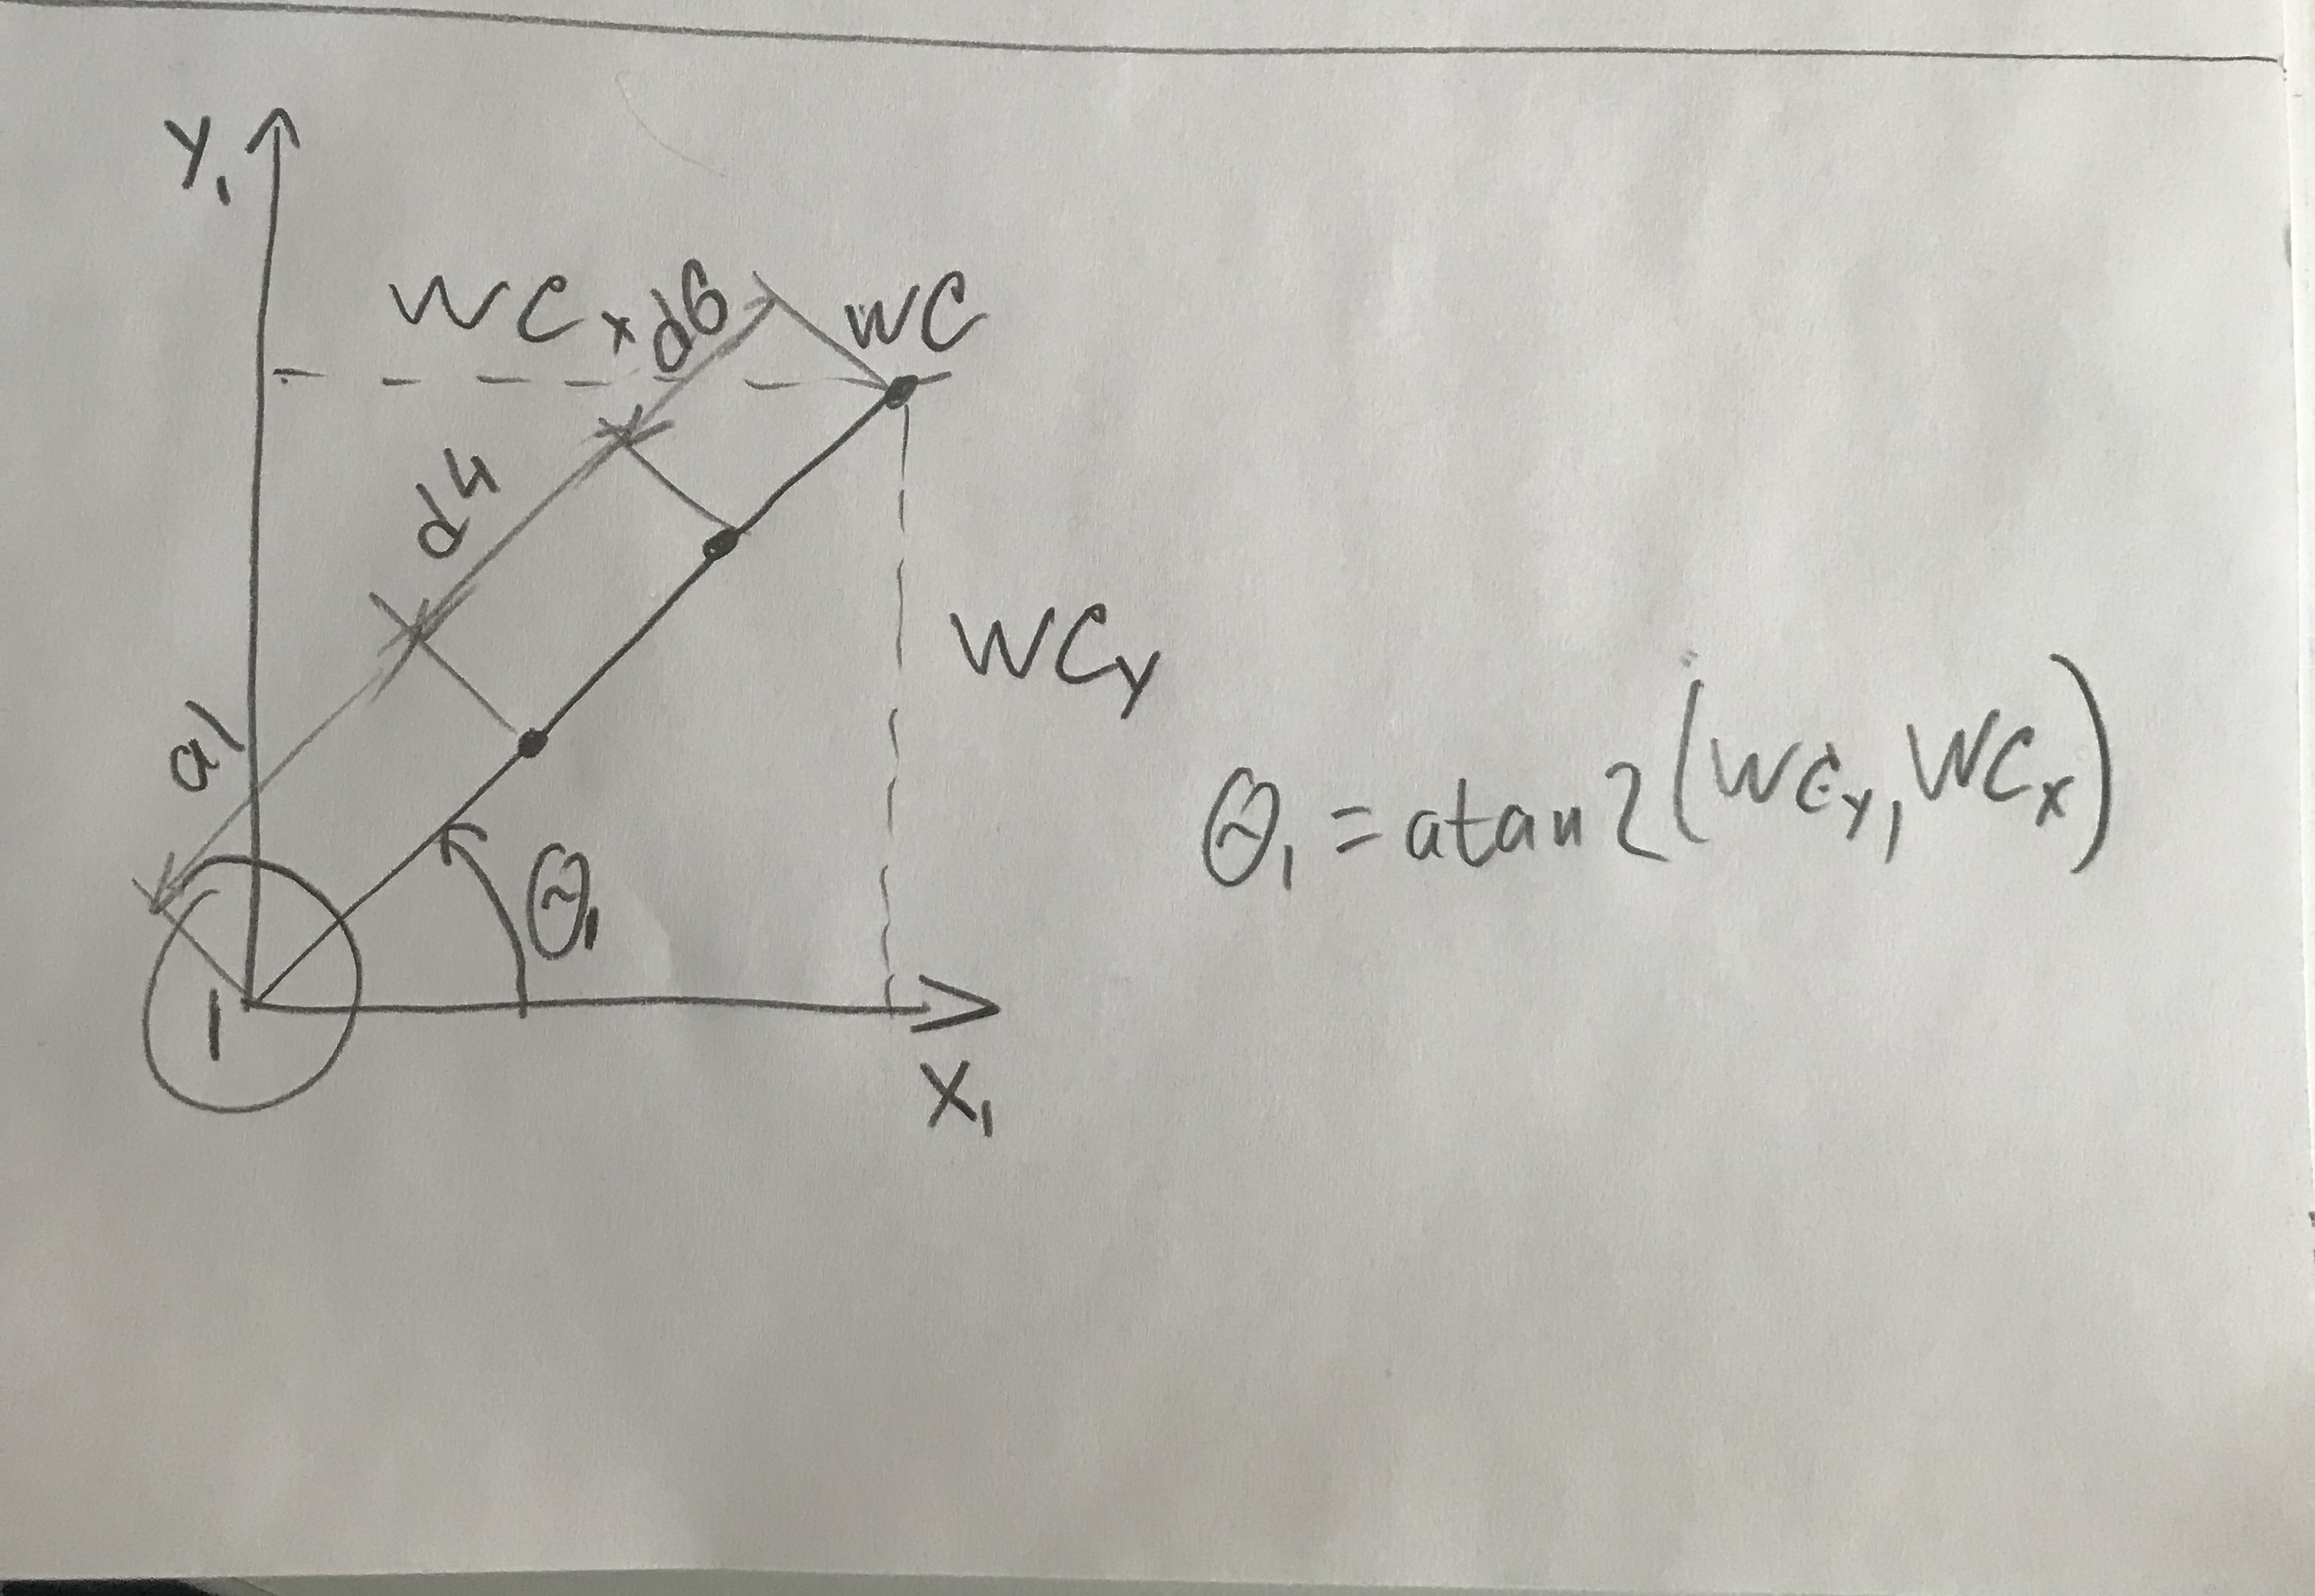 Y₁
WCₓ
d6
WC
d4
WCY
a1
θ₁
θ₁ = atan2(WCY, WCX)
1
X₁